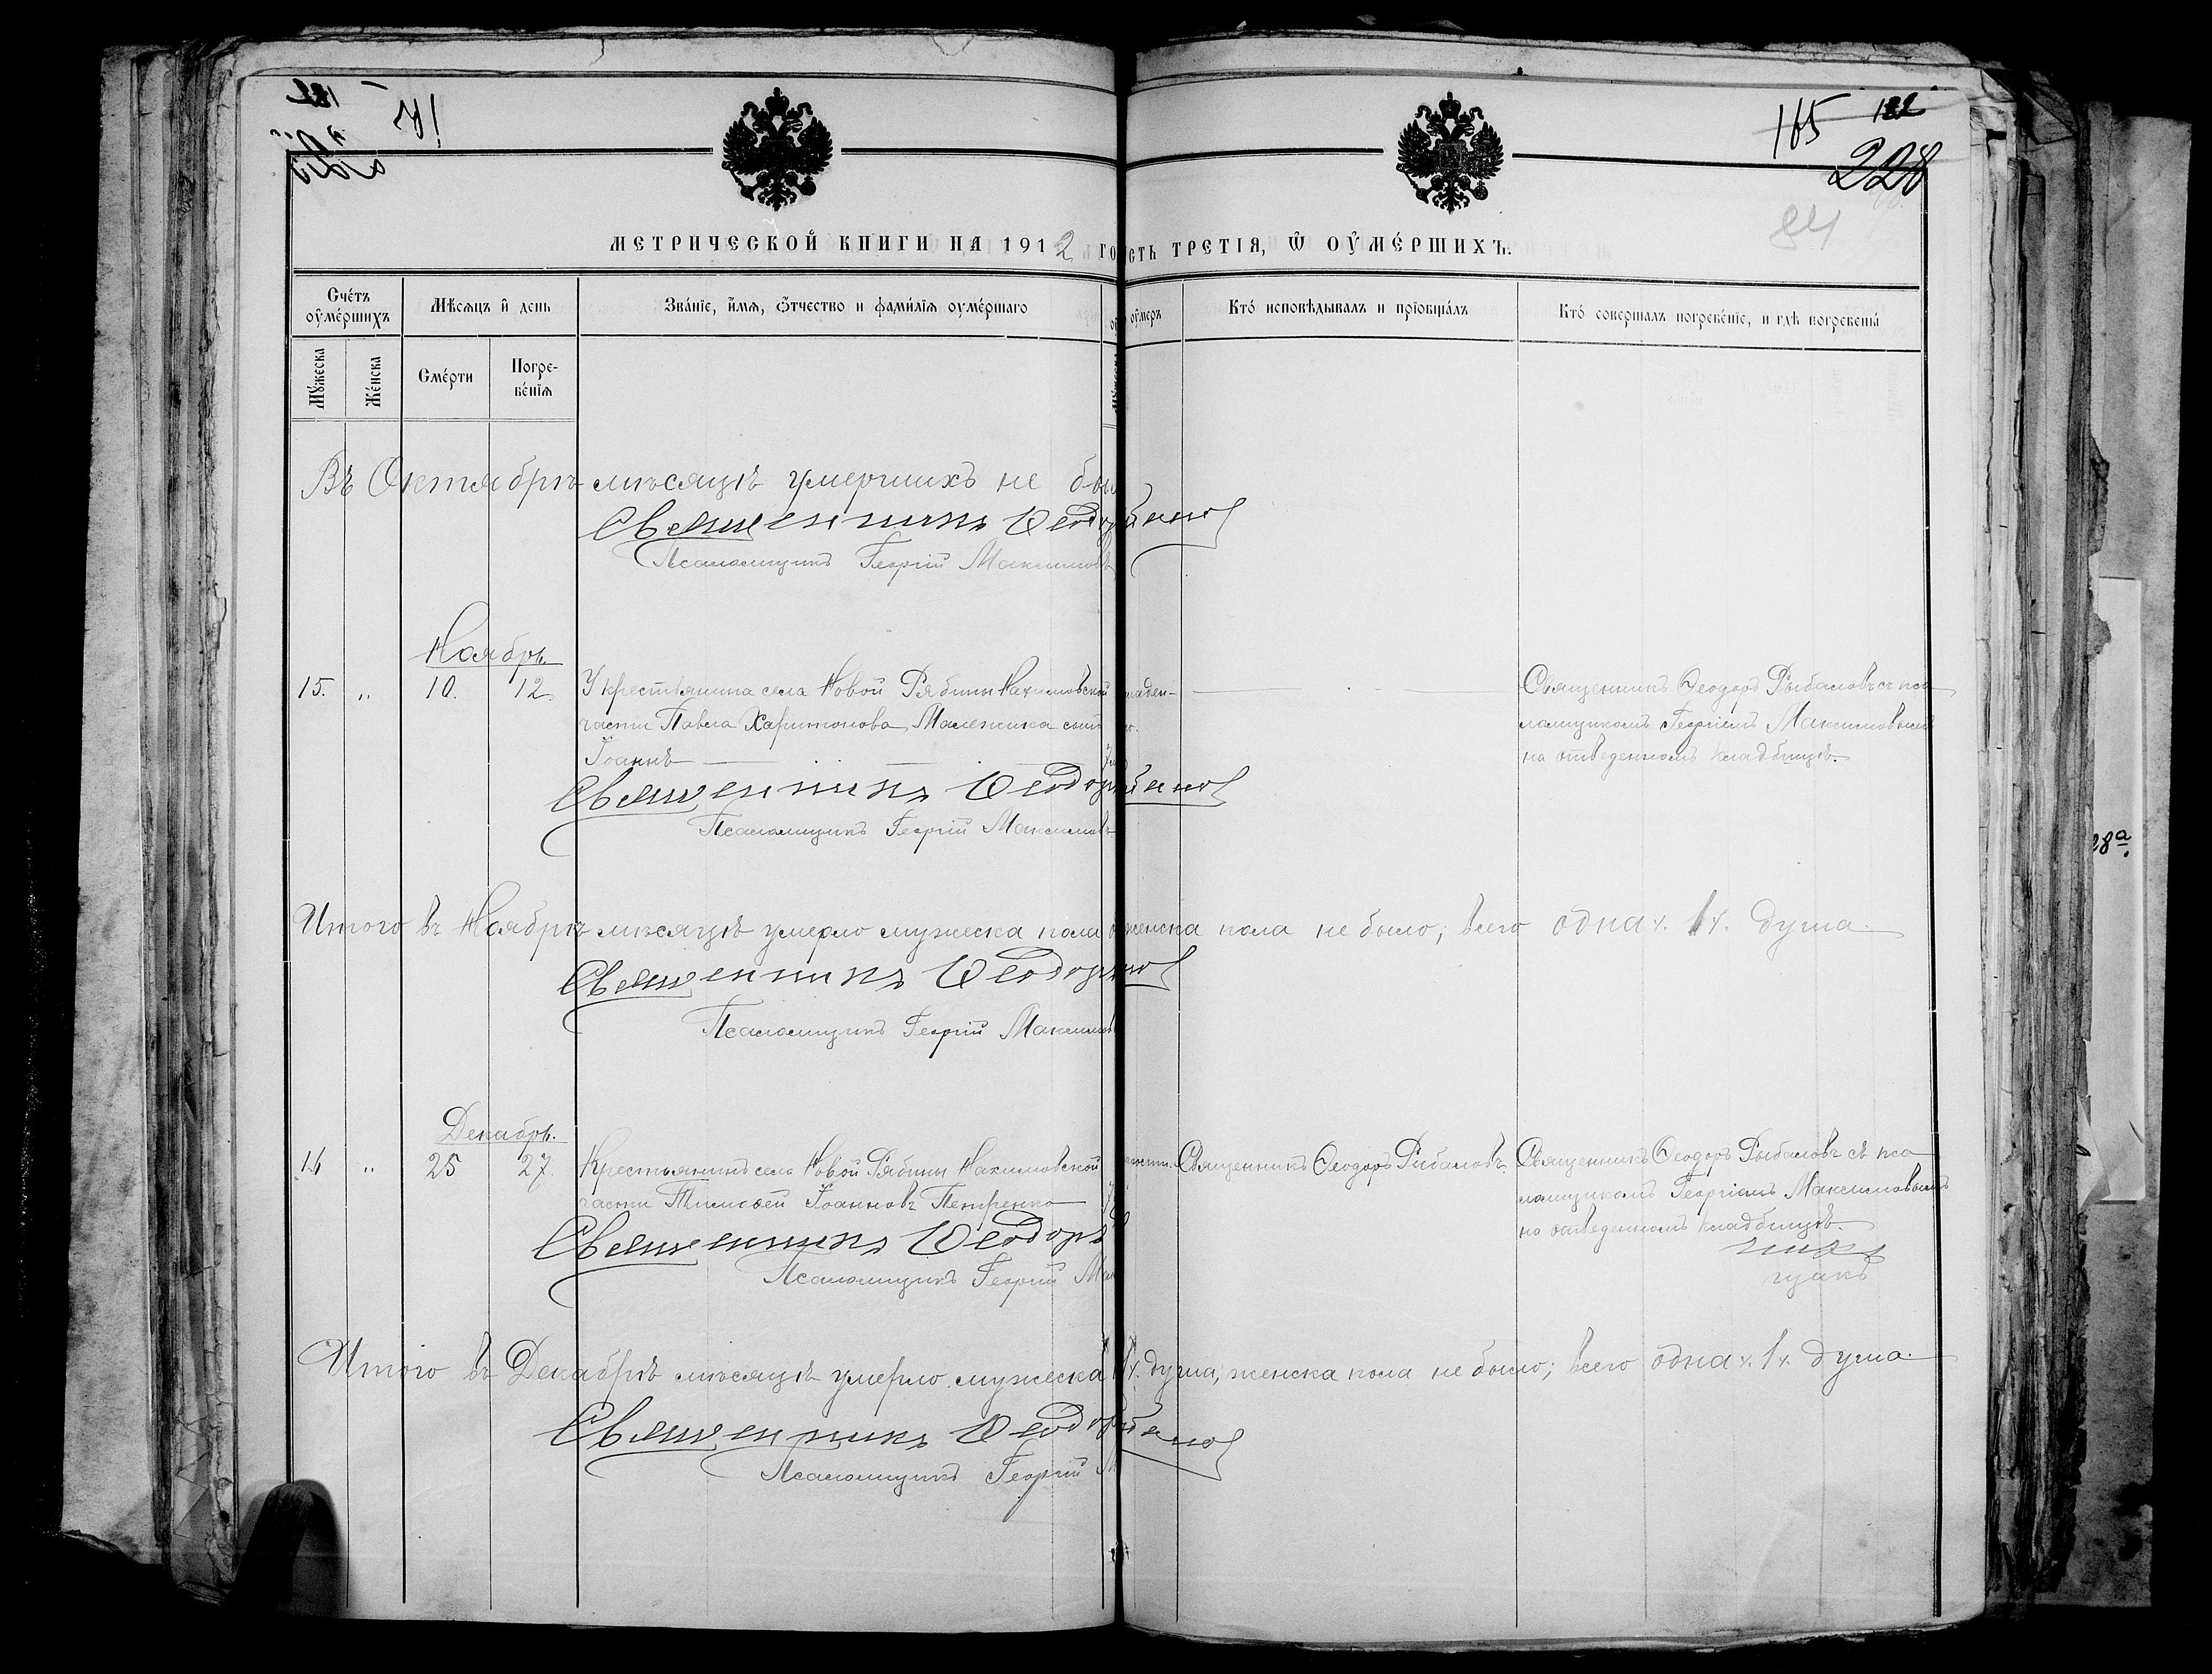 165 182
228
84
МЕТРИЧЕСКОЙ КНИГИ НА 1912 ГО
СТЬ ТРЕТІЯ, Ѿ ОУМЕРШИХЪ.
Счетъ оумершихъ
Мѣсяцъ и день
Званіе, имя, ѻтчество и фамилія оумершаго
оумеръ
Кто исповѣдывалъ и пріобщалъ
Кто совершалъ погребеніе, и гдѣ погребены
Мужеска
Женска
Смерти
Погребенія
Въ Октябрѣ мѣсяцѣ умершихъ не бы
Священникъ Ѳеодоръ
Псаломщикъ Георгій Максимовъ
Ноябрь.
15. „ 10. 12. У крестьянина села Новой Рябины Нахимовской
части Павла Харитонова Малежика сынъ
Іоаннъ
младен-
Священникъ Ѳеодоръ Рыбаловъ съ пса
ломщикомъ Георгіемъ Максимовымъ
на отведенномъ кладбищѣ.
Священникъ Ѳеодоръ
Псаломщикъ Георгій Максимовъ
Итого въ Ноябрѣ мѣсяцѣ умерло мужеска пола
женска пола не было; всего одна 1 душа.
Священникъ Ѳеодоръ
Псаломщикъ Георгій Максимов
Декабрь.
16 „ 25 27. Крестьянинъ села Новой Рябины Нахимовской
части Тимоѳей Іоанновъ Петренко
Священникъ Ѳеодоръ Рыбаловъ.
Священникъ Ѳеодоръ Рыбаловъ съ пса
ломщикомъ Георгіемъ Максимовымъ
на отведенномъ кладбищѣ.
Священникъ Ѳеодоръ
Псаломщикъ Георгій Мак
щикъ
Итого въ Декабрѣ мѣсяцѣ умерло мужеска
душа, женска пола не было; всего одна 1 душа.
Священникъ Ѳеодоръ
Псаломщикъ Георгій М
28а.